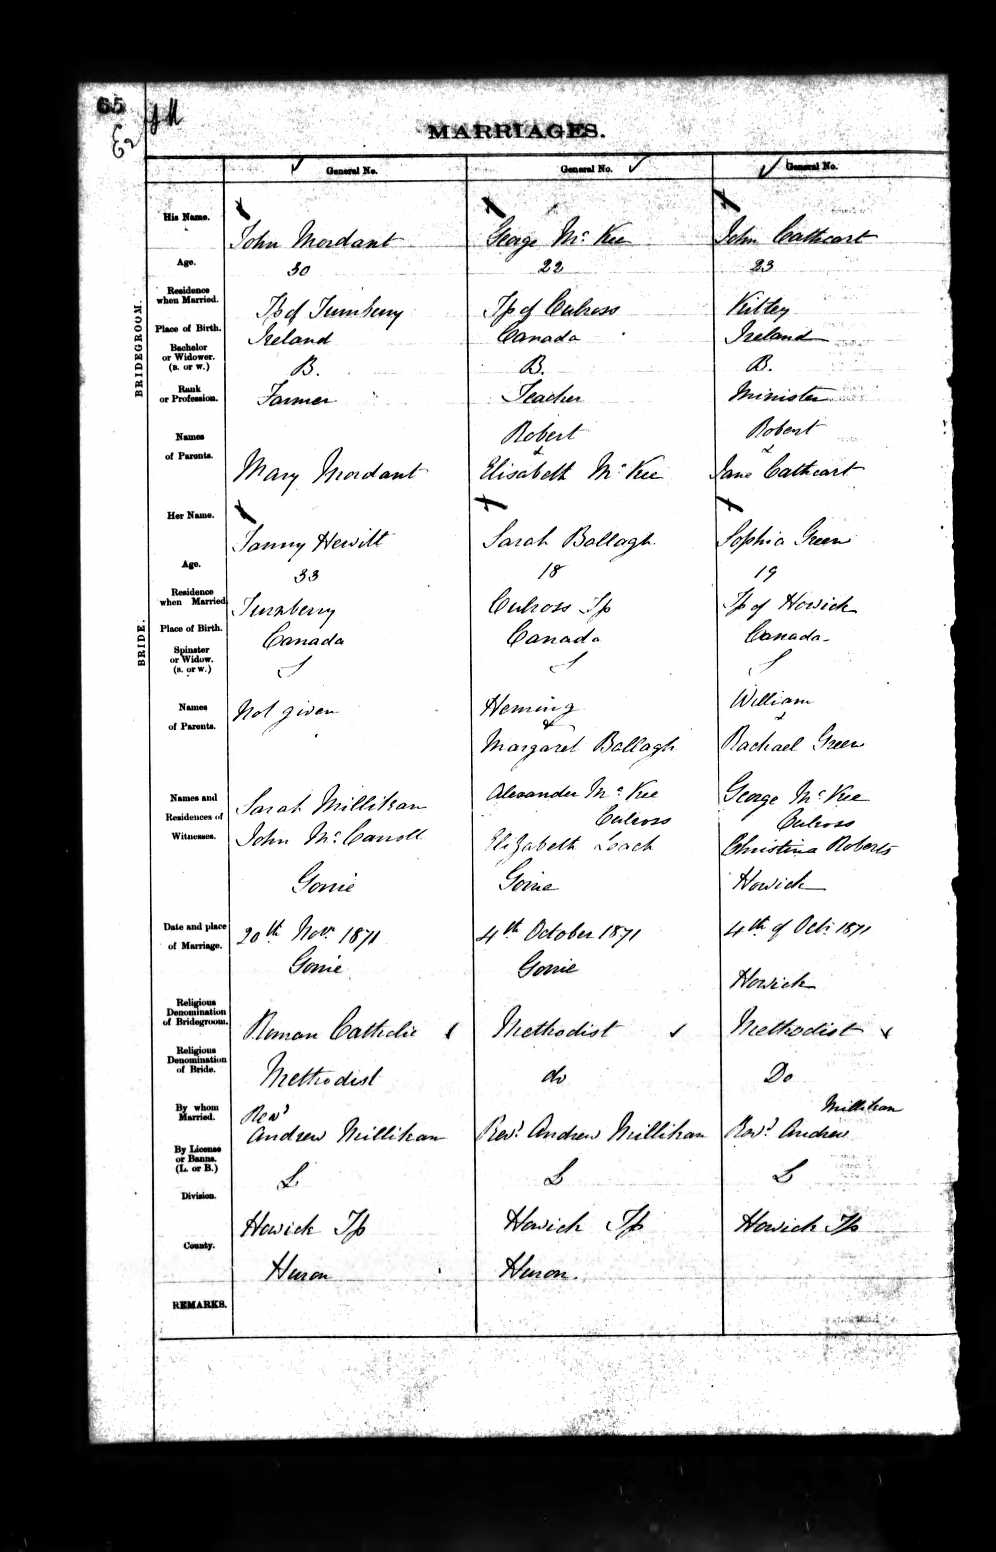 65
MARRIAGES.
General No. General No. General No.
BRIDEGROOM.
His Name. John Mordant George Mc Kee John Cathcart
Age. 30 22 23
Residence when Married. Tp of Turnberry Tp of Culross Kitley
Place of Birth. Ireland Canada Ireland
Bachelor or Widower. (B. or W.) B. B. B.
Rank or Profession. Farmer Teacher Minister
Names Robert Robert
& &
of Parents. Mary Mordant Elisabeth Mc Kee Jane Cathcart
BRIDE.
Her Name. Fanny Hewitt Sarah Ballagh Sophia Green
Age. 33 18 19
Residence when Married Turnberry Culross Tp Tp of Howick
Place of Birth. Canada Canada Canada
Spinster or Widow. (S. or W.) S S S
Names Not given Heming William
& &
of Parents. Margaret Ballagh Rachael Green
Names and Sarah Millikan Alexander Mc Kee George Mc Kee
Residences of Culross Culross
Witnesses. John Mc Carroll Elizabeth Leach Christina Roberts
Gorrie Gorrie Howick
Date and place 20th Novr 1871 4th October 1871 4th of Octr 1871
of Marriage. Gorrie Gorrie Howick
Religious Denomination of Bridegroom. Roman Catholic Methodist Methodist
Religious Denomination of Bride. Methodist do Do
By whom Married. Revd Andrew Millikan Revd Andrew Millikan Revd Andrew Millikan
By License or Banns. (L. or B.) L L L
Division. Howick Tp Howick Tp Howick Tp
County. Huron Huron.
REMARKS.